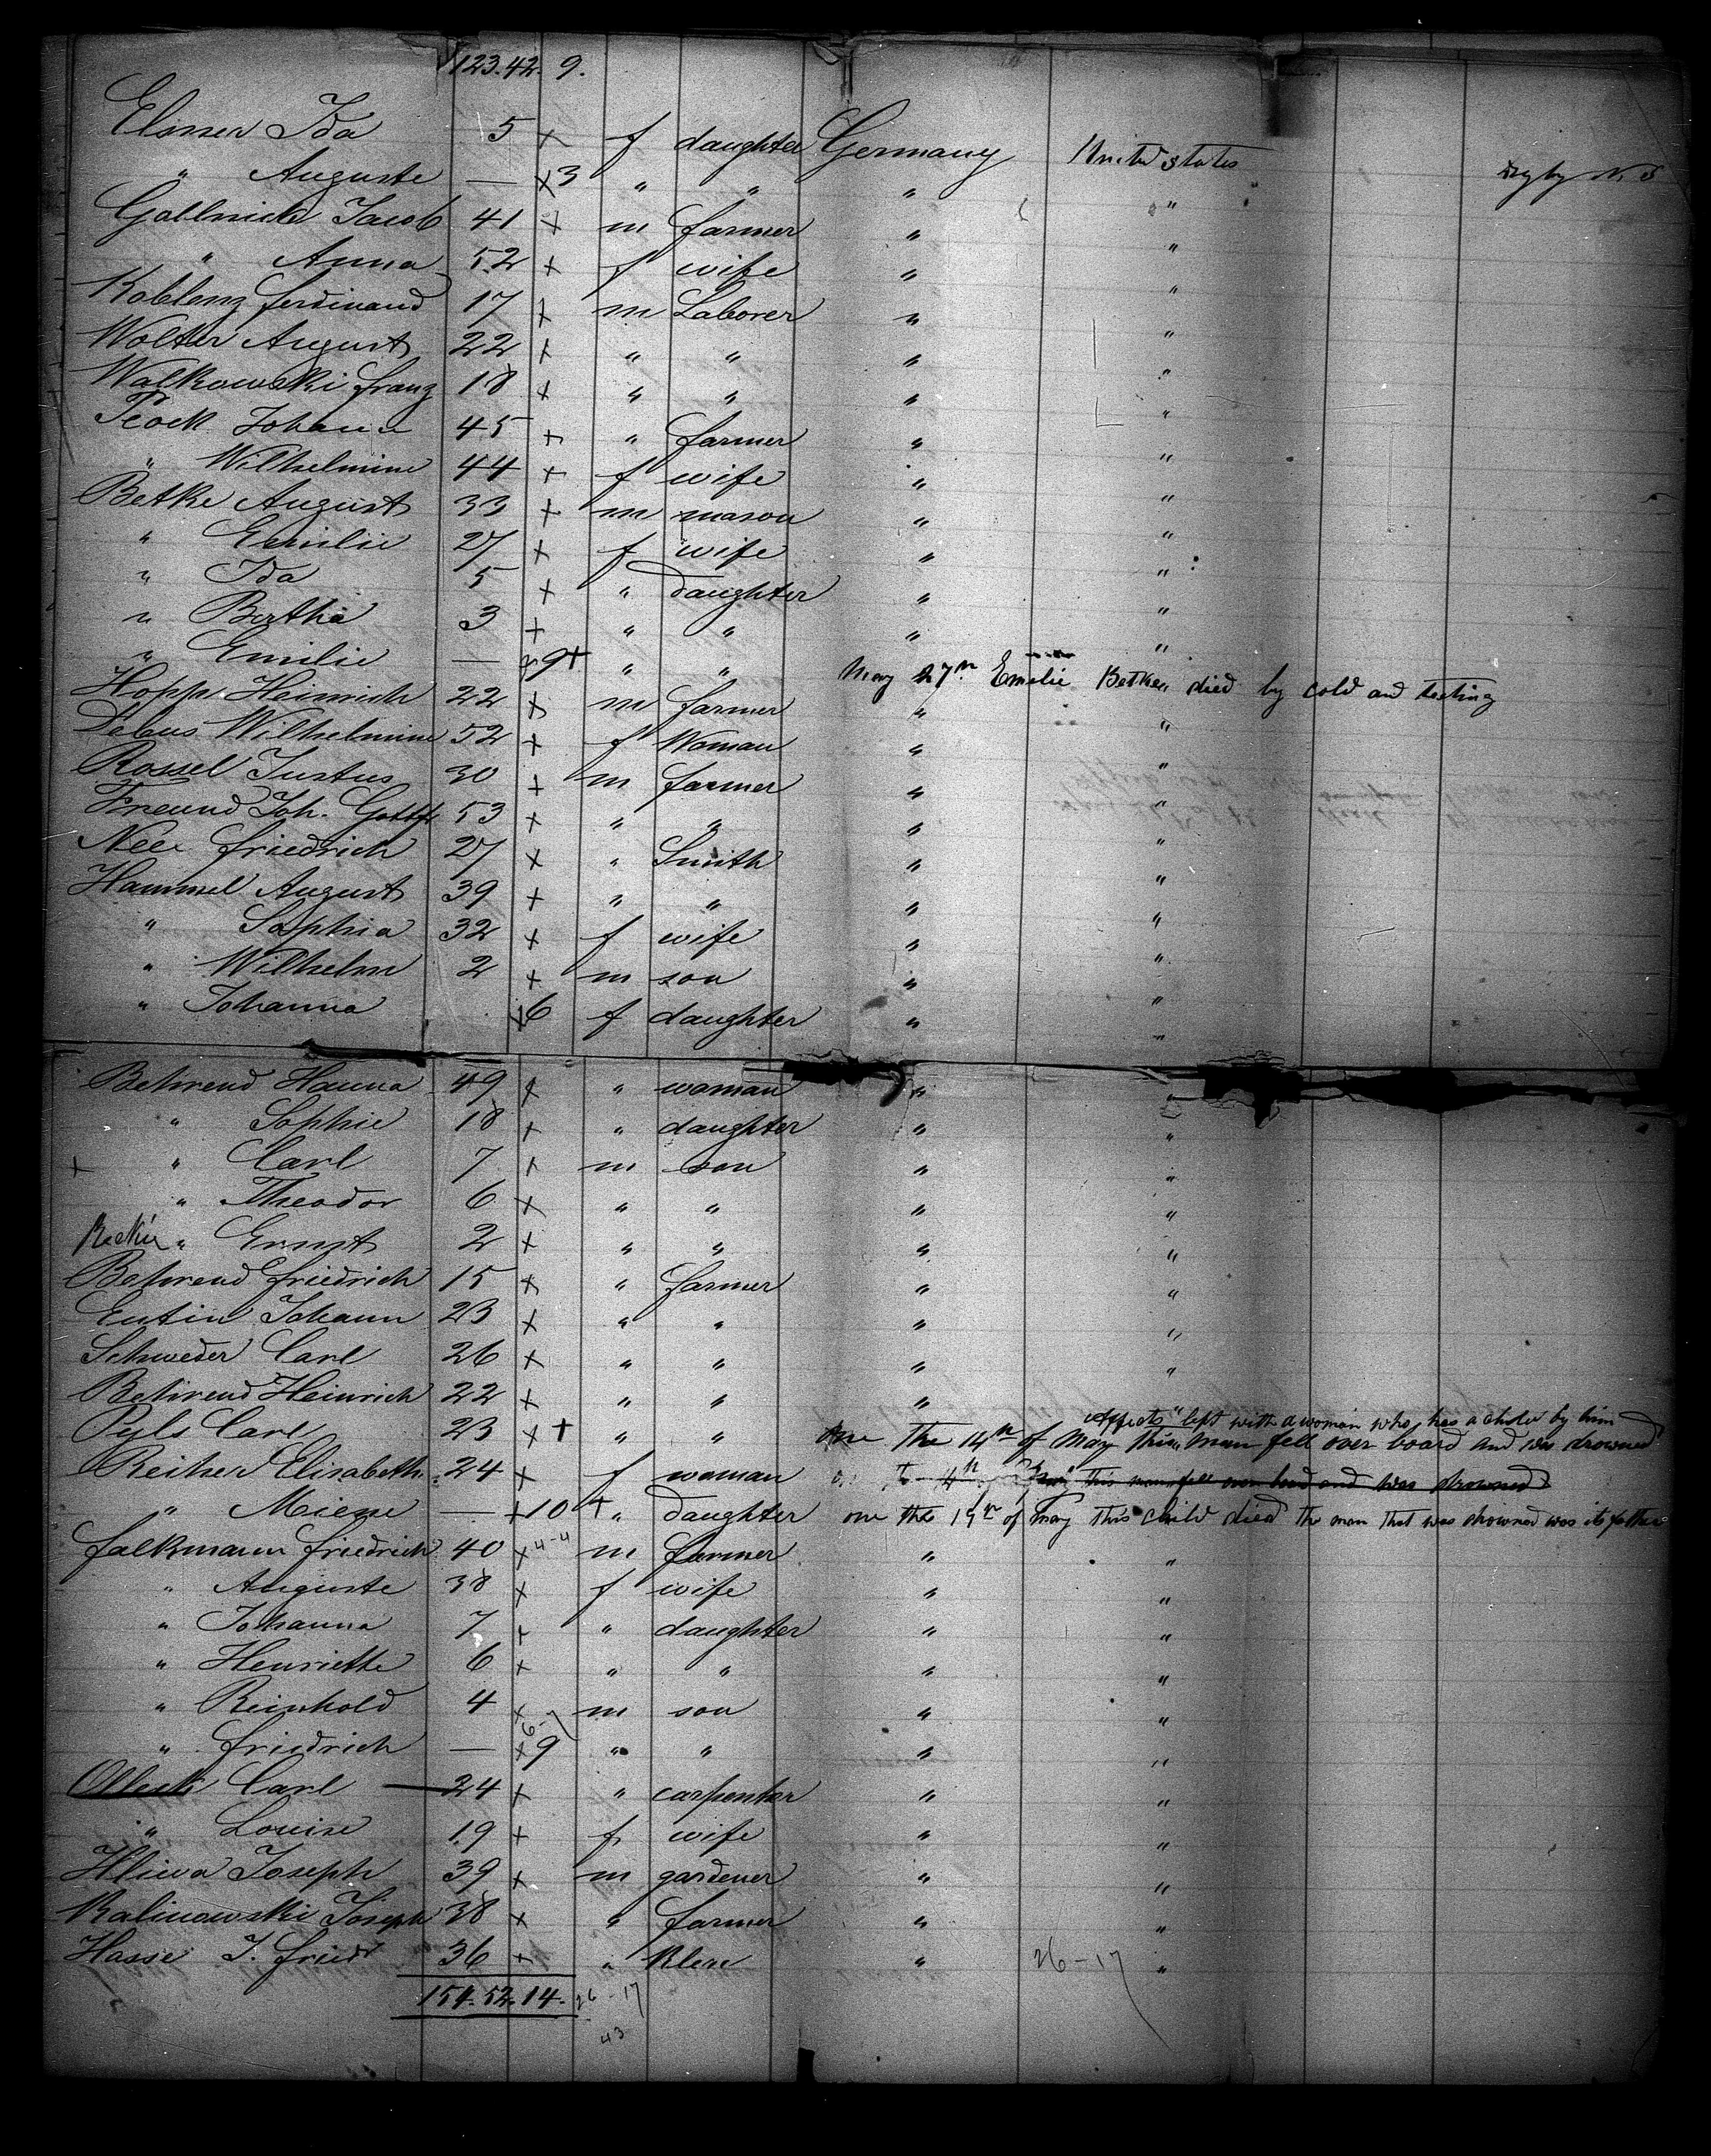 123. 42. 9.
Elsner Ida 5 x f daughter Germany United States
" Auguste — x3 " " " "
Gollnick Jacob 41 x m farmer " "
" Anna 52 x f wife " "
Koblenz ferdinand 17 x m Laborer " "
Wolter August 22 x " " " "
Walkowski franz 18 x " " " "
Johann 45 x " farmer " "
" Wilhelmine 44 x f wife " "
Betke August 33 x m mason " "
" Emilie 27 x f wife " "
" Ida 5 x " daughter " "
" Bertha 3 x " " " "
" Emilie — x9+ " " May 27th Emelie Betke died by cold and teeting
Hoppe Heinrich 22 x m farmer " "
Debus Wilhelmine 52 x f Woman " "
Rossel Justus 30 x m farmer " "
Freund Joh. Gottfr 53 x " " " "
Nee friedrich 27 x " Smith " "
Hammel August 39 x " " " "
" Sophia 32 x f wife " "
" Wilhelm 2 x m son " "
" Johanna x6 f daughter " "
Behrend Hanna 49 x " woman " "
" Sophie 18 x " daughter " "
x " Carl 7 x m son " "
" Theodor 6 x " " " "
" Ernst 2 x " " " "
Behrend friedrich 15 x " farmer " "
Eutin Johann 23 x " " " "
Schweder Carl 26 x " " " "
Behrend Heinrich 22 x " " " "
effects left with a woman who has a child by him
Pyls Carl 23 x + " " one the 14th of May this man fell over board and was drowned
Reiher Elisabeth 24 x f woman this man fell over bord and was drowned
" Miene — x10 + " daughter one the 19th of May this child died the man that was drowned was its father
falkmann friedrich 40 x 4-4 m farmer " "
" Auguste 38 x f wife " "
" Johanna 7 x " daughter " "
" Henriette 6 x " " " "
" Reinhold 4 x m son " "
6-7
" friedrich — x9 " " " "
Carl 24 x " carpenter " "
" Louise 19 x f wife " "
Hliwa Joseph 39 x m gardener " "
Kalinowski Joseph 38 x " farmer " "
Hasse J. friedr 36 x " " 26-17 "
154. 52. 14. 26-17
43